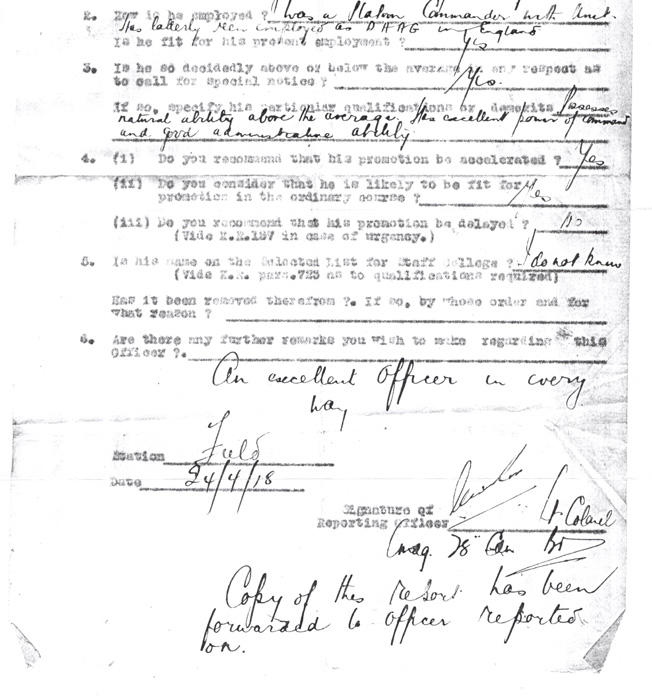 2. How is he employed ? Was a Platoon Commander with Unit.
Has latterly been employed as DAAG in England
Is he fit for his present employment ? Yes
3. Is he so decidedly above or below the average in any respect as
to call for special notice ? Yes.
If so, specify his particular qualifications or demerits Possesses
natural ability above the average. Has excellent power of command
and good administrative ability
4. (i) Do you recommend that his promotion be accelerated ? Yes
(ii) Do you consider that he is likely to be fit for
promotion in the ordinary course ? Yes
(iii) Do you recommend that his promotion be delayed ? No
(Vide K.R.137 in case of urgency.)
5. Is his name on the Selected List for Staff College ? I do not know
(Vide K.R. para.725 as to qualifications required)
Has it been removed therefrom ?. If so, by whose order and for
what reason ?
6. Are there any further remarks you wish to make regarding this
Officer ?.
An excellent Officer in every
way
Station Field
Date 24/4/18
Signature of
Reporting Officer Lt Colonel
Comdg. 78" Can Bn
Copy of this report has been
forwarded to officer reported
on.